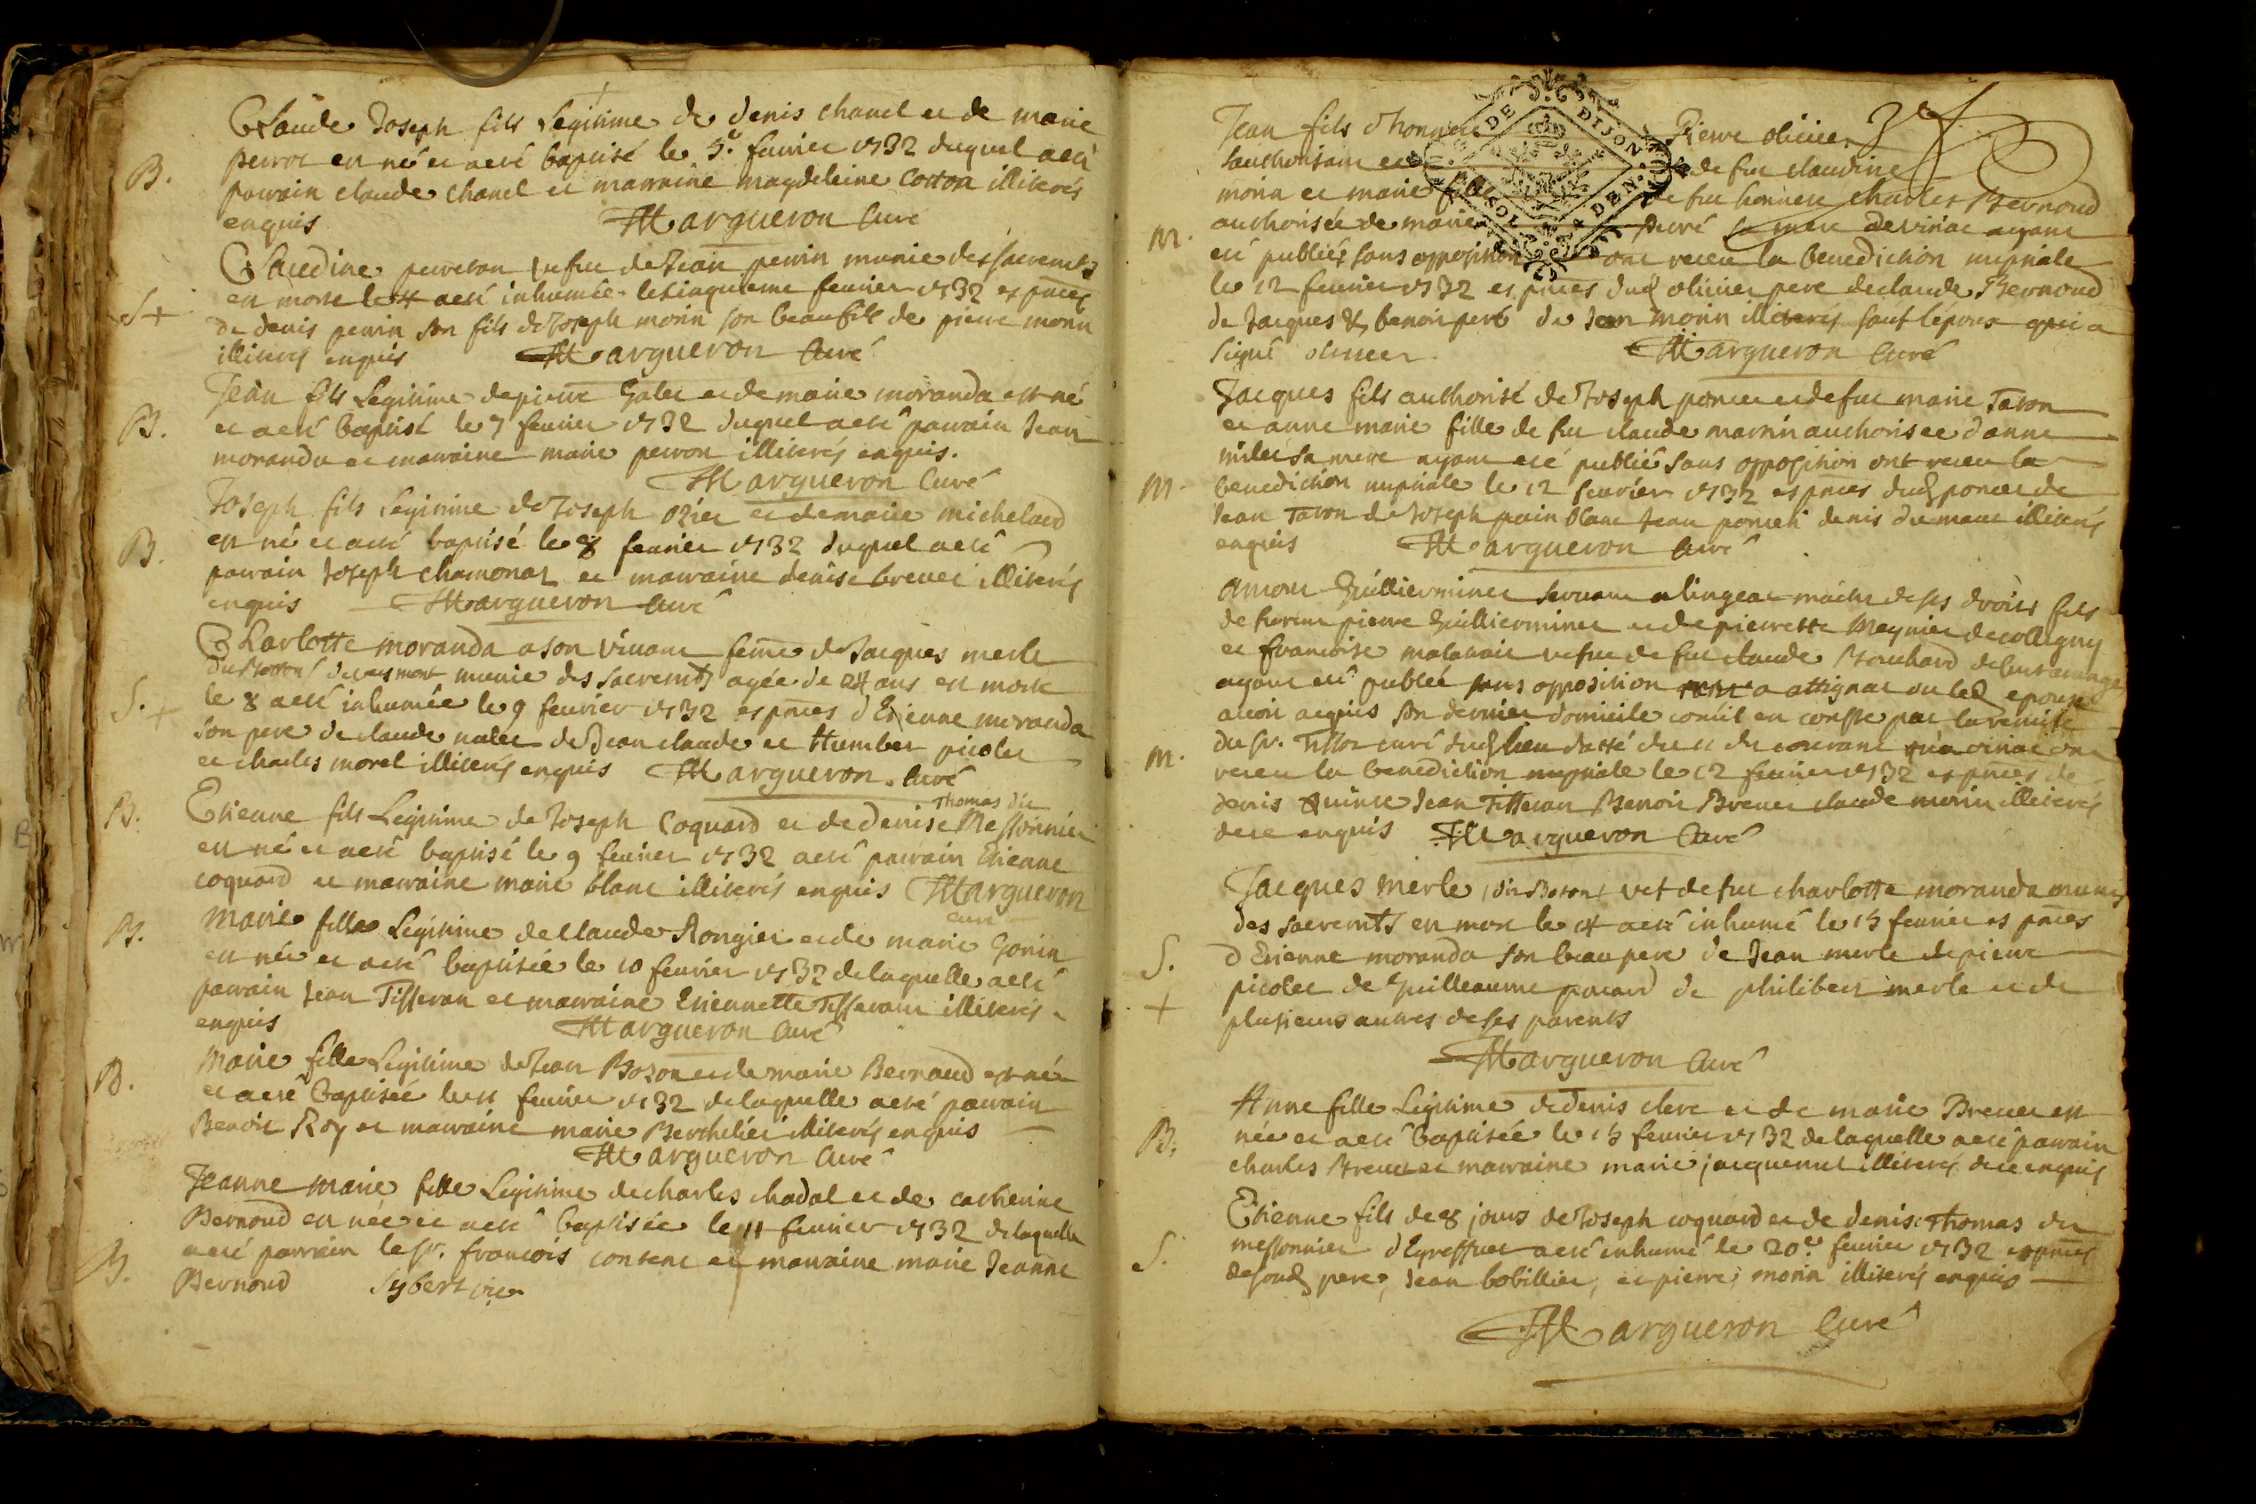 Claude Joseph fils Legitime de denis chanel et de marie
perrot est né et a eté baptisé le 5e fevrier 1732 duquel a eté
B. parrain claude chanel et marraine magdeleine Cotton illiterés
enquis Margueron Curé
Claudine perreton vefue de Jean perrin munie des sacremts
est morte le 4 a eté inhumée le cinquieme fevrier 1732 es pnces
S + de denis perrin son fils de Joseph morin son beaufils de pierre morin
illiterés enquis Margueron Curé
Jean fils Legitime de pierre et de marie moranda est né
B. et a eté baptisé le 7 fevrier 1732 duquel a eté parrain Jean
moranda et marraine marie perron illiterés enquis.
Margueron Curé
Joseph fils Legitime de Joseph ozier et de marie michelard
B. est né et a eté baptisé le 8 fevrier 1732 duquel a eté
parrain Joseph chamonat et marraine denise brevet illiterés
enquis Margueron Curé
Charlotte moranda a son vivant feme de Jacques merle
munie des sacremts agée de 24 ans est morte
S. + le 8 a eté inhumée le 9 fevrier 1732 es pnces d Etienne moranda
son pere de claude de Jean claude et Humbert picolet
et charles morel illiterés enquis Margueron Curé
Thomas dit
B. Etienne fils Legitime de Joseph Coquard et de denise Messonnier
est né et a eté baptisé le 9 fevrier 1732 a eté parrain Etienne
coquard et marraine marie blanc illiterés enquis Margueron
curé
B. Marie fille Legitime de Claude Rongier et de marie Gonin
est née et a eté baptisée le 10 fevrier 1732 de laquelle a eté
parrain Jean Tisseran et marraine Etiennette Tisserant illiterés
enquis Margueron Curé
Marie fille Legitime de Jean Bozon et de marie Bernaud est née
B. et a eté baptisée le 11 fevrier 1732 de laquelle a eté parrain
Benoit Roy et marraine marie Berthelier illiterés enquis
Margueron Curé
Jeanne marie fille Legitime de charles chadal et de catherine
Bernoud est née et a eté baptisée le 11 fevrier 1732 de laquelle
B. a eté parrain le sr. francois et marraine marie Jeanne
Bernoud Sybert vic
Jean fils d honnete Pierre olivier 3e
lauthorisant et de fue claudine
morin et marie fille de fut honnete charles Bernoud
M. authorisée de marie sa mere de viriat ayant
eté publiés sans opposition ont receu la benediction nuptiale
le 12 fevrier 1732 es pnces dud olivier pere de claude Bernoud
de Jacques & benoit de Jean morin illiterés sauf lepoux qui a
signé olivier. Margueron Curé
Jacques fils authorisé de Joseph poncet et de fue marie Taton
et anne marie fille de fut claude martin authorisee d anne
sa mere ayant eté publié sans opposition ont receu la
M. benediction nuptiale le 12 fevrier 1732 es pnces dud poncet de
Jean Taton de Joseph pain blanc Jean poncet denis illiterés
enquis Margueron Curé
Amour Guillierminet servant a lingeat maitre de ses droits fils
de pierre Guillierminet et de pierrette Meynier de colligny
et francoise vefue de fut claude Bouchard
ayant eté publié sans opposition a attignat ou led epoux
avoit acquis son dernier domicile comme il en conste par la remise
M. du sr. Tissot curé dud lieu datté du 11 du courant a viriat ont
receu la benediction nuptiale le 12 fevrier 1732 es pnces de
denis Jean Tisseran Benoit Brevet claude morin illiterés
de ce enquis Margueron Curé
Jacques merle (dit Boton) vef de fue charlotte moranda muny
des sacremts est mort le 14 a eté inhumé le 15 fevrier es pnces
S. d Etienne moranda son beau pere de Jean merle de pierre
+ picolet de Guilleaume de philibert merle et de
plusieurs autres de ses parents
Margueron Curé
Anne fille Legitime de denis clerc et de marie Brevet est
B. née et a eté baptisée le 15 fevrier 1732 de laquelle a eté parrain
charles Brevet et marraine marie jacquemet illiterés de ce enquis
Etienne fils de 8 jours de Joseph coquard et de denise Thomas dit
S. messonnier a eté inhumé le 20e fevrier 1732 es pnces
de sond pere, Jean bobillier, et pierre morin illiterés enquis
Margueron Curé